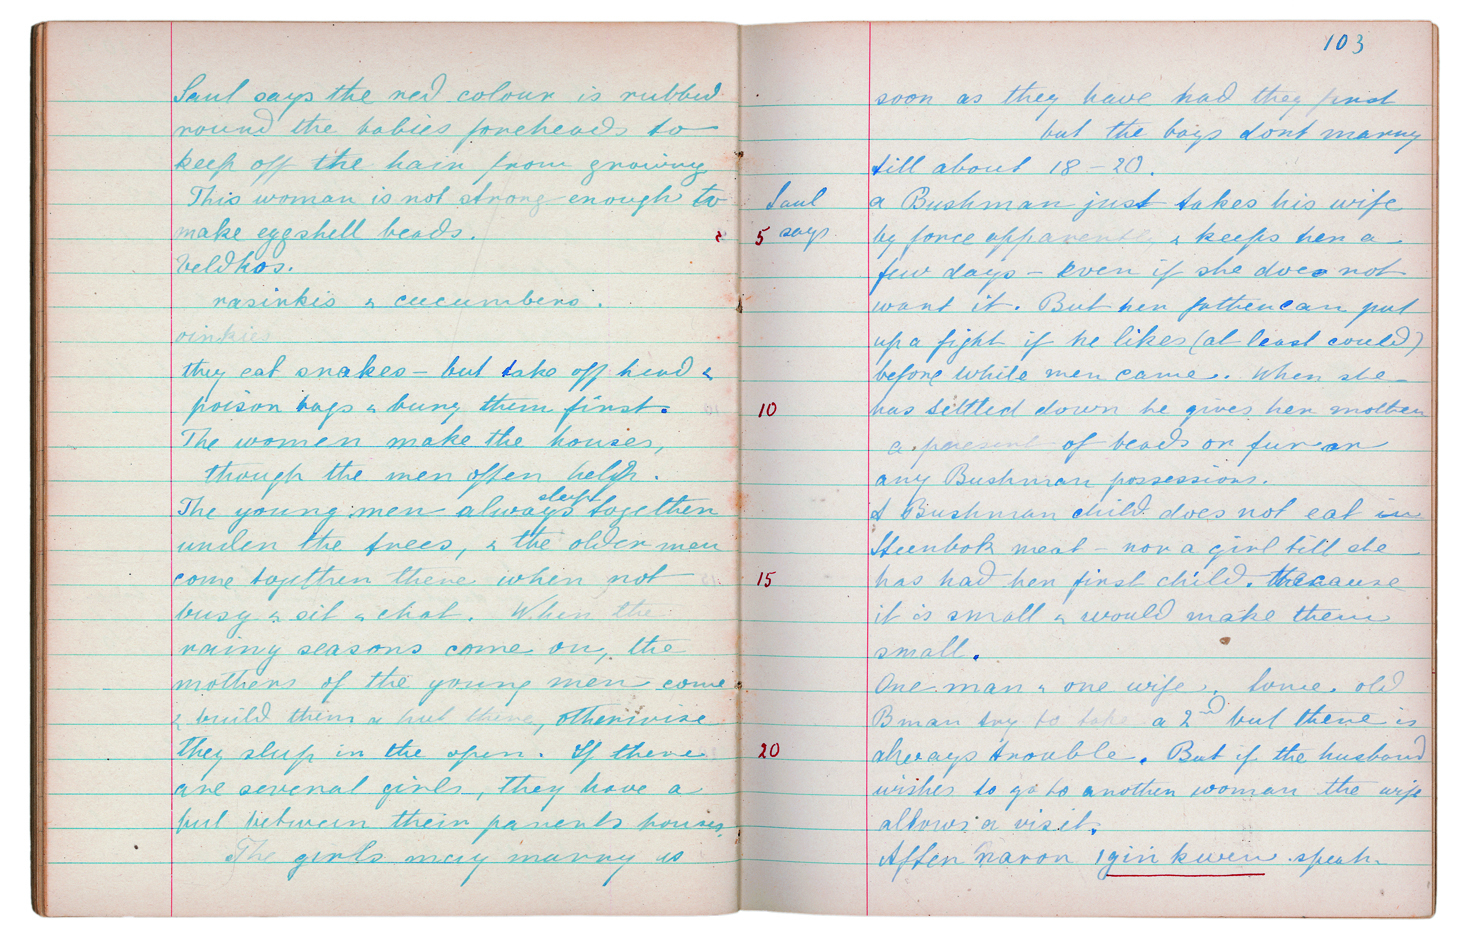 Saul says the red colour is rubbed
round the babies foreheads to
keep off the hair from growing
This woman is not strong enough to
make eggshell beads.
Veldkos.
rasinkis & cucumbers.
oinkies
they eat snakes – but take off head &
poison bags & bury them first.
The women make the houses,
though the men often help.
slept
The young men always together
under the trees, & the older men
come together there when not
busy & sit & chat. When the
rainy seasons come on, the
mothers of the young men come
& build them a hut there, otherwise
they sleep in the open. If there
are several girls, they have a
hut between their parents houses.
The girls may marry as
103
soon as they have had they first
but the boys dont marry
till about 18–20.
Saul
says
a Bushman just takes his wife
5
by force apparently & keeps her a
few days – even if she does not
want it. But her father can put
up a fight if he likes (at least could)
before white men came. When she
10
has settled down he gives her mother
a present of beads or fur or
any Bushman possessions.
A Bushman child does not eat
Steenbok meat – nor a girl till she
15
has had her first child. because
it is small & would make them
small.
One man & one wife. Some old
Bman try to take a 2nd but there is
20
always trouble. But if the husband
wishes to go to another woman the wife
allows a visit.
After Naron gin kwen speak